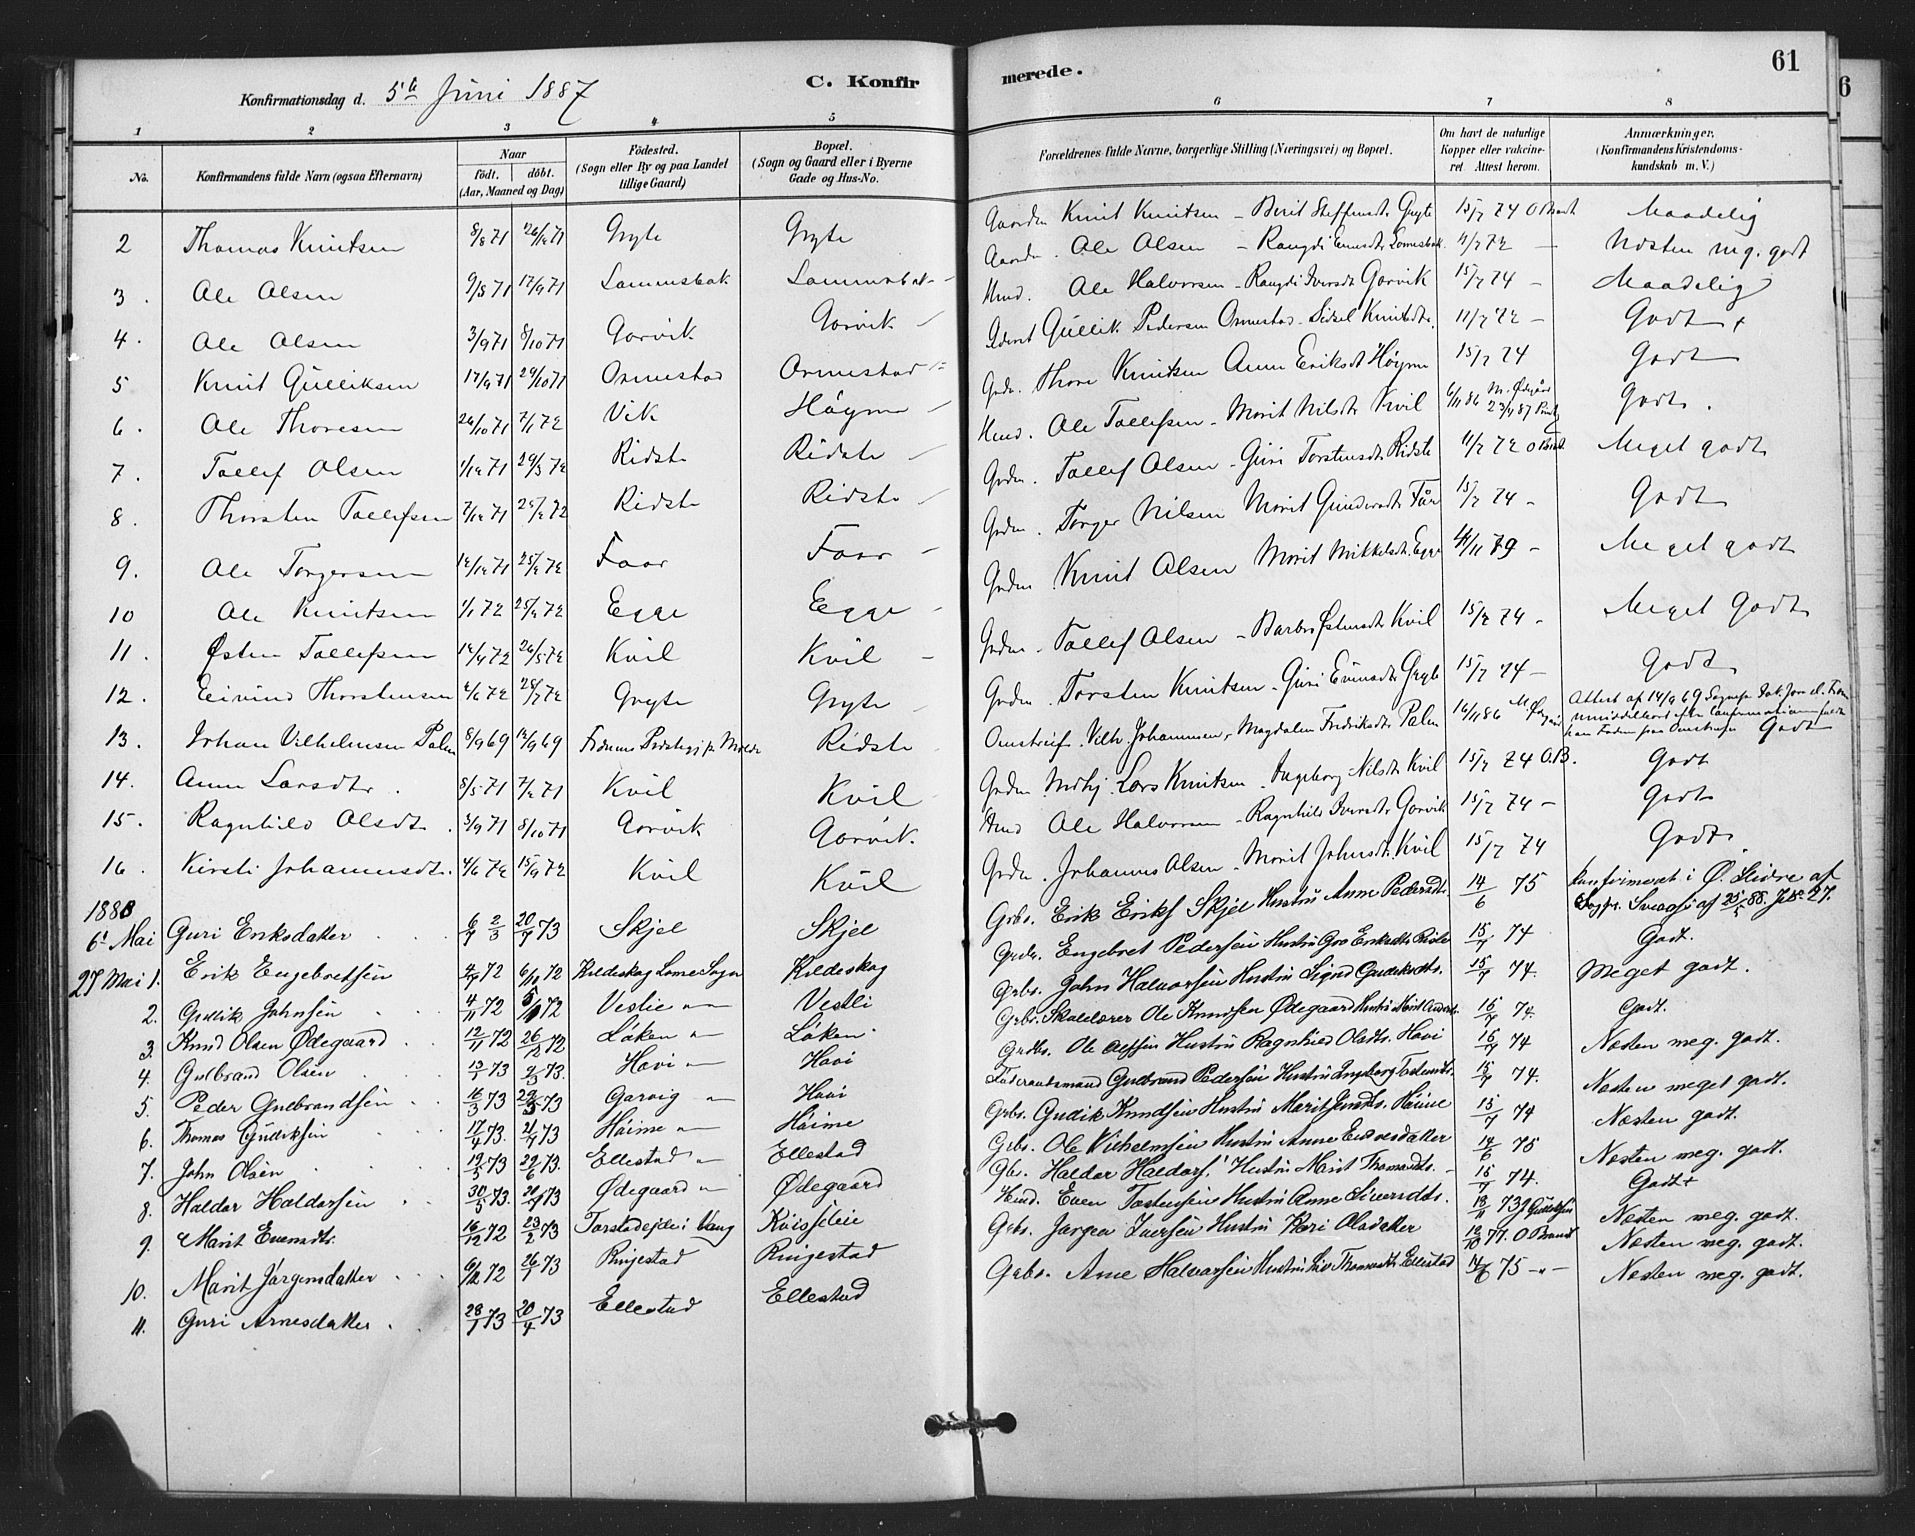 Konfirmationsdag d. 5te Juni 1887 C. Konfirmerede. 61
1 2 3 4 5 6 7 8
No. Konfirmandens fulde Navn (ogsaa Efternavn) Naar født. døbt. (Aar, Maaned og Dag) Fødested. (Sogn eller By og paa Landet tillige Gaard) Bopæl. (Sogn og Gaard eller i Byerne Gade og Hus-No. Forældrenes fulde Navne, borgerlige Stilling (Næringsvei) og Bopæl. Om havt de naturlige Kopper eller vakcineret Attest herom. Anmærkninger, (Konfirmandens Kristendomskundskab m. V.)
2 Thomas Knutsen 8/8 71 Gryte Gryte Gaardm. Knut Knutsen - Berit Steffensdt. Gryte 15/7 74 O Brandt Maadelig
3. Ole Olsen 9/8 71 17/9 71 Lommebak Lommebak - Ole Olsen - Rangdi 11/7 72 - Næsten mg. godt
4. Ole Olsen 3/9 71 8/10 71 Gorvik Gorvik - Hmd. Ole Halvorsen - Rangdi Iversdt Gorvik 15/7 74 - Maadelig
5 Knut Gulliksen 17/9 71 29/10 71 Ormestad Ormestad Gullik Pedersen Ormestad - Sidsel Knutsdt. 11/7 72 - Godt +
6. Ole Thoresen 26/10 71 7/1 72 Vik Høyme - Grdm. Thore Knutsen Anne Eriksdt Høyme 15/7 74 Godt
7. Tollef Olsen 1/12 71 29/3 72 Ridste Ridste - Hmd. Ole Tollefsen - Marit Nilsdt Kvil 6/11 86 Godt.
8. Thorsten Tollefsen 7/12 71 25/2 72 Ridste Ridste - Grdm. Tollef Olsen - Guri Torstensdt Ridste 11/7 72 O Brandt Meget godt
9. Ole Torgersen 12/12 71 25/2 72 Faar Faar - Grdm. Torger Nilsen Marit Gundersdt Får 15/7 74 - Godt
10 Ole Knutsen 1/1 72 25/2 72 Egge Egge - Grdm. Knut Olsen Marit Mikkelsdt. Egge 11/11 79 - Meget godt
11. Østen Tollefsen 14/4 72 26/5 72 Kvil Kvil - Grdm. Tollef Olsen - Barbro Østensdt Kvil 15/7 74 - Meget Godt
12. Eivind Thorstensen 2/6 72 28/7 72 Gryte Gryte Grdm. Torsten Knutsen - Guri Evensdt Gryte 15/7 74 - Godt
13. Johan Vilhelmsen Palm 8/9 69 12/9 69 Molde Ridste Omstreif. Vilh. Johannesen, Magdalen Fredriksdt Palm 16/11 86 Attest af 14/9 69 Godt
14. Anne Larsdt. 8/5 71 7/7 71 Kvil Kvil Grdm. Lars Knutsen Ingeborg Nilsdt Kvil 15/7 74 O.B. Godt
15. Ragnhild Olsdt. 3/9 71 8/10 71 Gorvik Gorvik. Hmd Ole Halvorsen - Ragnhild Iversdt Gorvik 15/7 74 - Godt
16. Kirsti Johannesdt. 4/6 72 15/9 72 Kvil Kvil Grdm. Johannes Olsen - Marit Johnsdt. Kvil 15/7 74 Godt
1888
6t Mai Guri Eriksdatter 20/4 73 Skjel Skjel Grbs. Erik Eriks. Skjel Hustru Anne Pedersdt. 14/6 75 konfirmeret i Ø. Slidre af Sogpr. af 25/5 88. 27.
27 Mai 1. Erik Engebretsen 4/9 72 6/10 72 Kildeskag Lome Sogn Kildeskag Grbs. Engebret Pedersen Hustru Goro Eriksdt Riste 15/7 74 Godt.
2. Gullik Johnsen 4/11 72 Veslie -"- Veslie Grbs. John Halvorsen Hustru Sigrid Gudiksdt. 15/7 74. Meget godt.
3. Knud Olsen Ødegaard 12/11 72 26/12 72 Løken -"- Løken Grbs. Skolelærer Ole Knudsen Ødegaard Hustru Marit 15/7 74 Godt.
4. Gulbrand Olsen 12/1 73 2/3 73. Hovi -"- Hovi Grbs. Ole Hustru Ragnhild Olsdt. Hovi 15/7 74 Næsten meg. godt.
5. Peder Gulbrandsen 16/3 73 Garvig -"- Hovi Føderaadsmand Gulbrand Pedersen Hustru Ingeborg Tostensdt. 15/7 74. Næsten meget godt.
6. Thomas Gudiksen 17/4 73. 21/7 73 Høime -"- Høime Grbs. Gudik Knudsen Hustru Marit Høime 15/7 74 Næsten godt.
7. John Olsen 19/5 73 29/6 73. Ellestad -"- Ellestad Grbs. Ole Vilhelmsen Hustru Anne Endresdatter 14/6 75 Næsten meg. godt.
8. Haldor Haldorsen 30/5 73. Ødegaard -"- Ødegaard Gbs. Haldor Haldors. Hustru Marit Thomasdt. - 15/7 74. Godt +
9. Marit Evensdt. 16/12 72 23/2 73 Torstadejde i Vang Kvisseleie Hmd. Even Tostensen Hustru Anne Siversdt. 18/11 73 Næsten meg. godt.
10. Marit Jørgensdatter 6/12 72 26/1 73 Ringestad Ringestad Grbs. Jørgen Iversen Hustru Kari Olsdatter 12/10 77. O Brandt Næsten meg. godt.
11. Guri Arnesdatter 28/1 73 20/4 73 Ellestad Ellestad Grbs. Arne Halvorsen Hustru Liv Thomasdt Ellestad 14/6 75 -"- Næsten meg. godt.